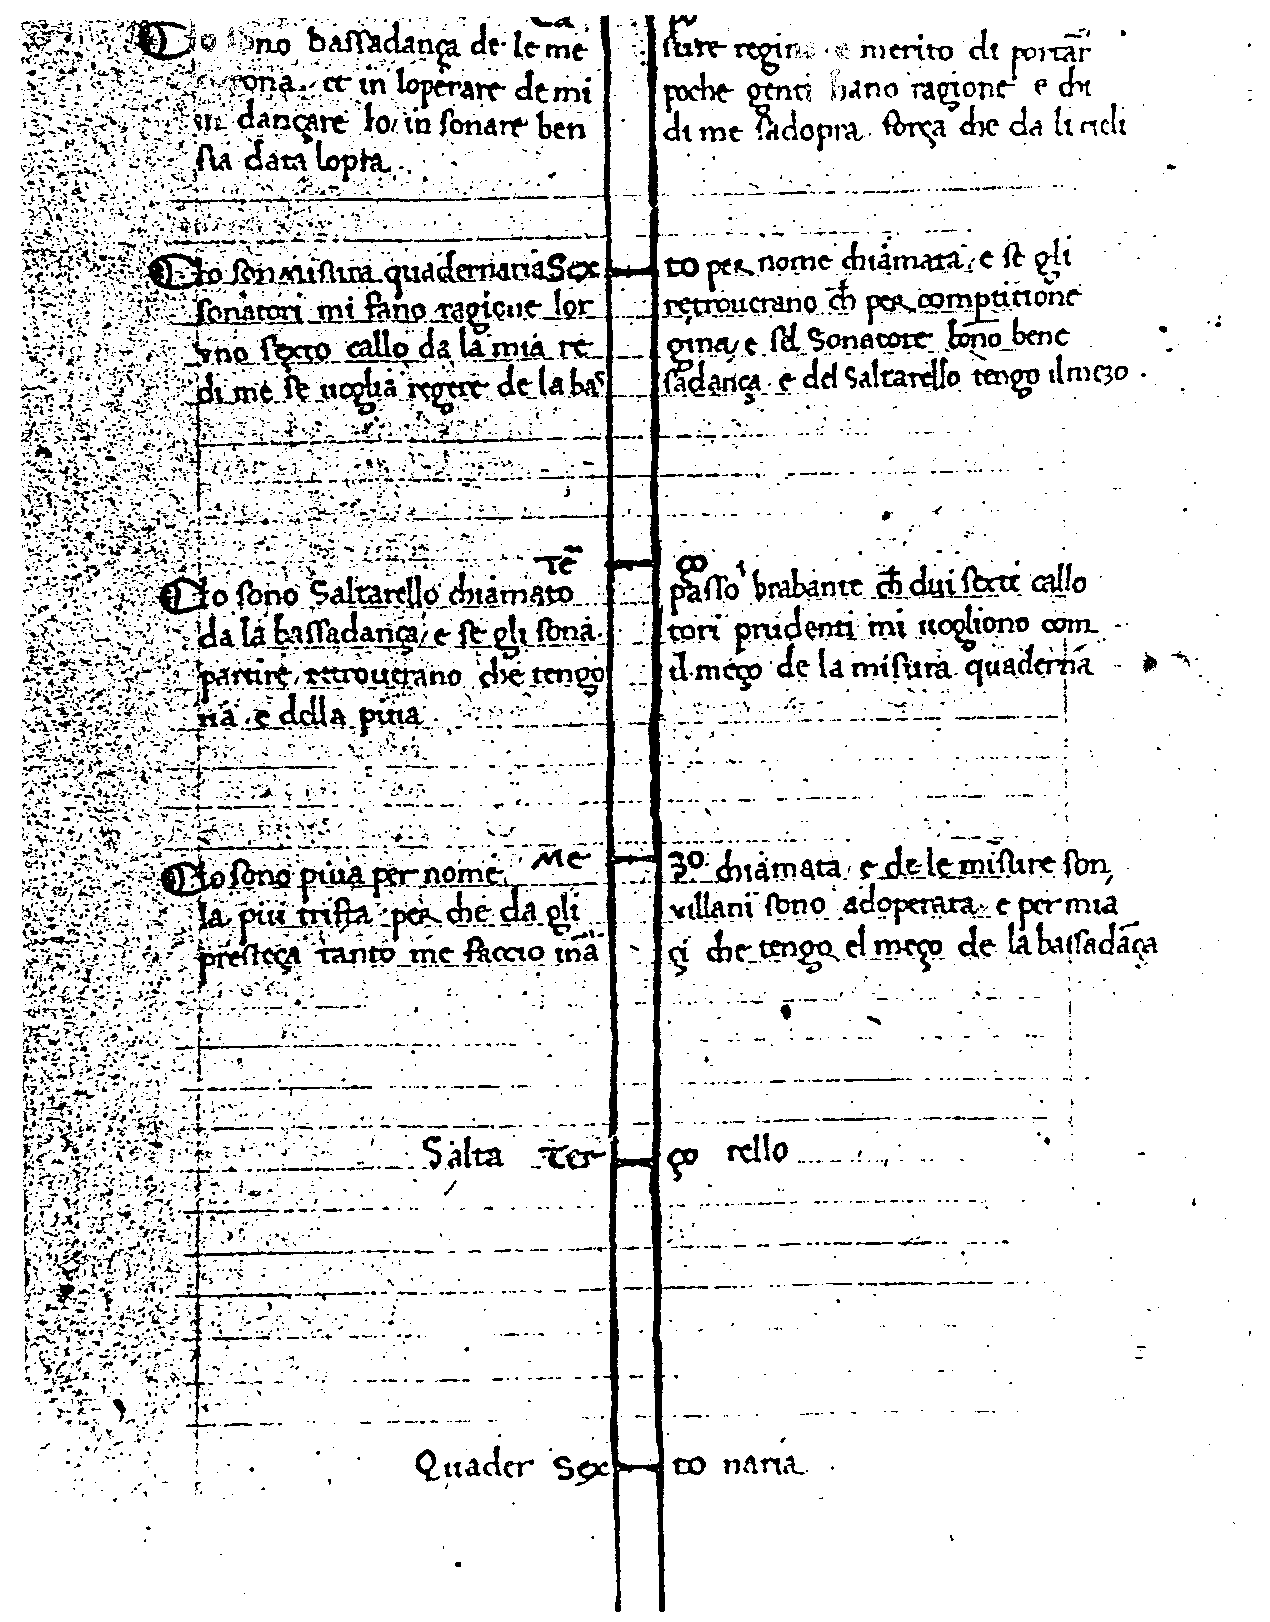 Ca po
Io sono bassadança de le me sure regina e merito di portar̄
corona. et in loperare de mi poche genti hano ragione e chi
in dançare Io, in sonare ben di me sadopra. força che da li cieli
sia data lopra.
Io son misura quadernaria Sex to per nome chiamata, e se gli
sonatori mi fano ragione lor retroverano ch̄ per comptitiōne
vno sexto callo da la mia re gina, e sel Sonatore bōno bene
di me se uoglia regere de la bas sadança. e del Saltarello tengo il mezo.
Tē ço
Io sono Saltarello chiamato passo brabante ch̄ dui sexti callo
da la bassadança, e se gli sona. tori prudenti mi uogliono com
partire, retrouerano che tengo il meço de la misura quaderna
ria. e della piua.
Me zo
Io sono piua per nome chiamata, e de le misure son,
la piu trista per che da gli villani sono adoperata. e per mia
presteça tanto me faccio inā çi che tengo el meço de la bassadāça
Salta Ter ço rello
Quader Sex to naria.